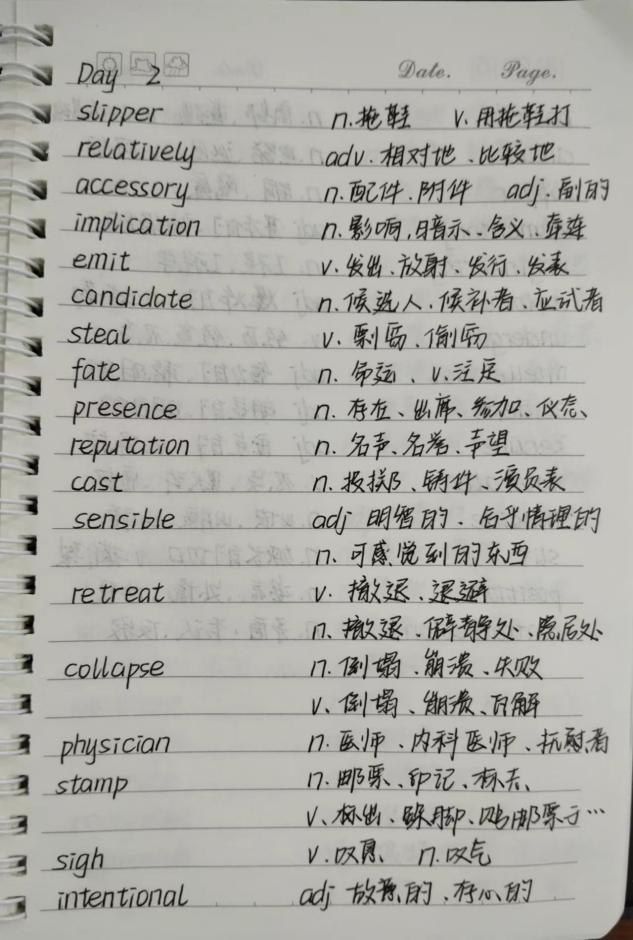 Date. Page.
Day 2
slipper n.拖鞋 v.用拖鞋打
relatively adv.相对地、比较地
accessory n.配件、附件 adj.副的
implication n.影响,暗示、含义、牵连
emit v.发出、放射、发行、发表
candidate n.候选人、候补者、应试者
steal v.剽窃、偷窃
fate n.命运、v.注定
presence n.存在、出席、参加、仪态、
reputation n.名声、名誉、声望
cast n.投掷、铸件、演员表
sensible adj 明智的、合乎情理的
n.可感觉到的东西
retreat v.撤退、退避
n.撤退、僻静处、隐居处
collapse n.倒塌、崩溃、失败
v.倒塌、崩溃、瓦解
physician n.医师、内科医师、抚慰者
stamp n.邮票、印记、标志、
v.标出、跺脚、贴邮票于…
sigh v.叹息 n.叹气
intentional adj 故意的、存心的